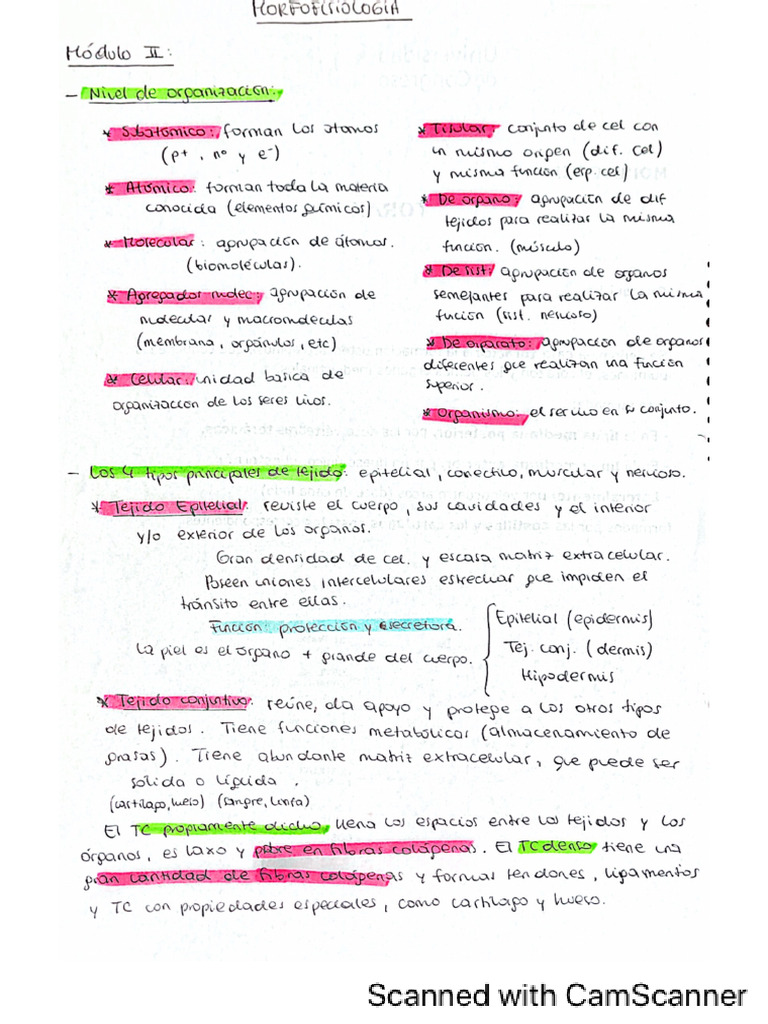 MORFOFISIOLOGIA
Módulo II:
- Nivel de organización:
* Subatómico: forman los átomos
(p+, n° y e-)
* Atómico: forman toda la materia
conocida (elementos químicos)
* Molecular: agrupación de átomos.
(biomoléculas).
* Agregados molec: agrupación de
molecular y macromoléculas
(membrana, orgánulos, etc)
* Celular: unidad basica de
organización de los seres vivos.
* Tisular: conjunto de cel con
un mismo origen (dif. cel)
y misma función (esp. cel)
* De organo: agrupación de dif
tejidos para realizar la misma
función. (músculo)
* De sist: agrupación de organos
semejantes para realizar la misma
función (sist. nervioso)
* De aparato: agrupación de organos
diferentes que realizan una función
superior.
* Organismo: el ser vivo en su conjunto.
- Los 4 tipos principales de tejido: epitelial, conectivo, muscular y nervioso.
* Tejido Epitelial: reviste el cuerpo, sus cavidades y el interior
y/o exterior de los órganos.
Gran densidad de cel. y escasa matriz extracelular.
Poseen uniones intercelulares estrechas que impiden el
tránsito entre ellas.
Función: protección y secretora.
La piel es el órgano + grande del cuerpo.
Epitelial (epidermis)
Tej. conj. (dermis)
Hipodermis
* Tejido conjuntivo: reúne, da apoyo y protege a los otros tipos
de tejidos. Tiene funciones metabólicas (almacenamiento de
grasas). Tiene abundante matriz extracelular, que puede ser
solida o líquida.
(cartílago, hueso) (sangre, linfa)
El TC propiamente dicho, llena los espacios entre los tejidos y los
órganos, es laxo y pobre en fibras colágenas. El TC denso tiene una
gran cantidad de fibras colágenas y formas tendones, ligamentos
y TC con propiedades especiales, como cartílago y hueso.
Scanned with CamScanner